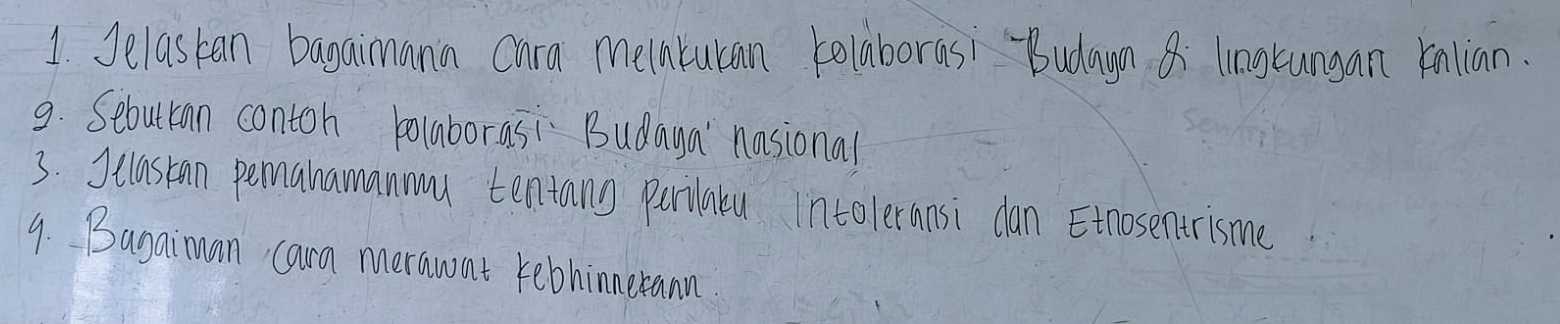 1. Jelaskan bagaimana cara melakukan kolaborasi Budaya di lingkungan kalian.
2. Sebutkan contoh kolaborasi Budaya nasional
3. Jelaskan pemahamanmu tentang perilaku Intoleransi dan Etnosentrisme.
4. Bagaiman cara merawat kebhinnekaan.